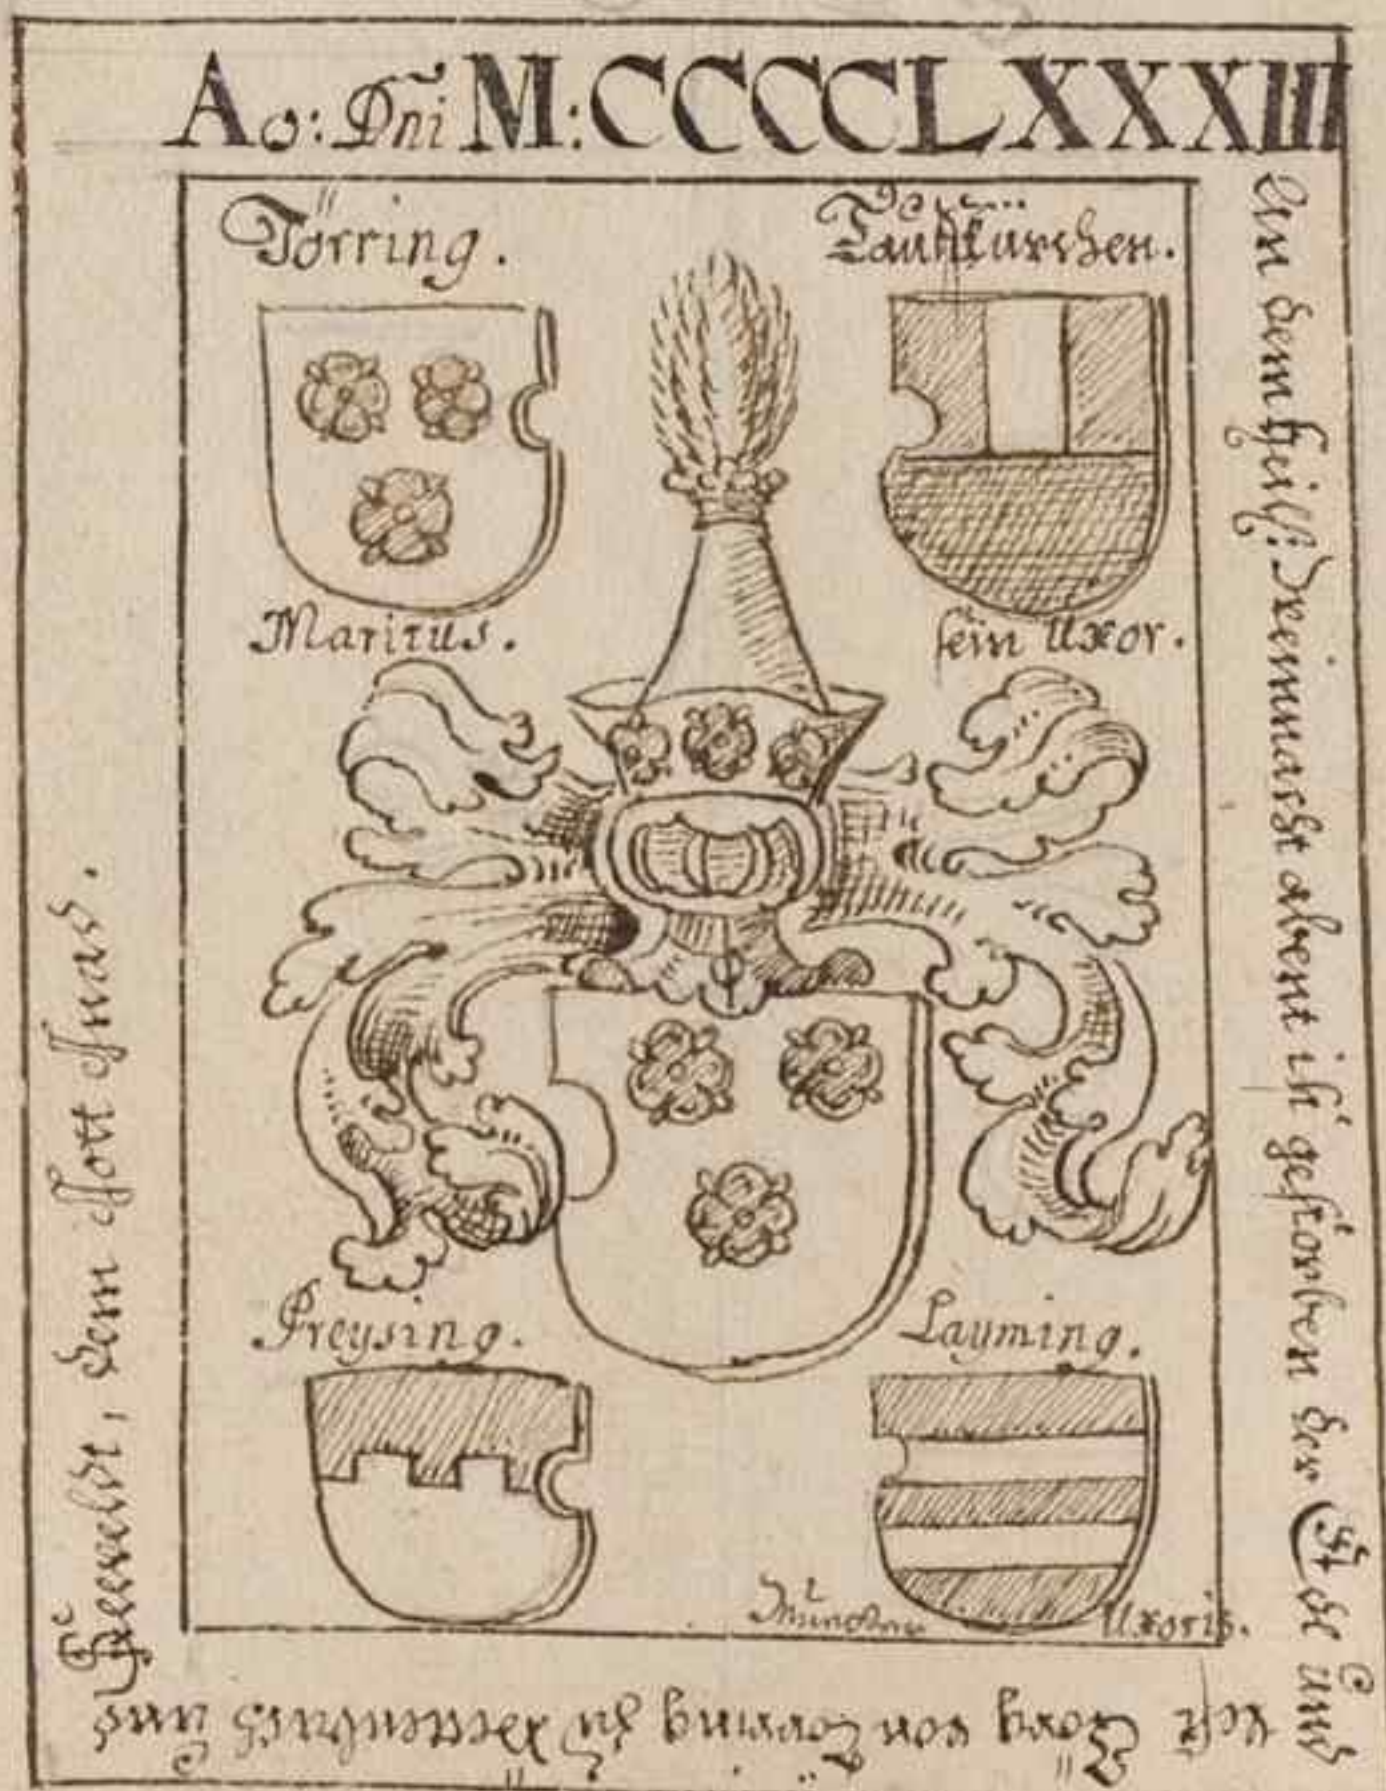 Ao: Dni M: CCCCLXXXIII
An dem heil: Weinnacht abent ist gestorben der Edl unnd
vest Jörg von Törring zu und
Seeveldt, dem Gott Gnad.
Törring.
Taufkürchen.
Maritus.
sein Uxor.
Preysing.
Layming.
Uxoris.